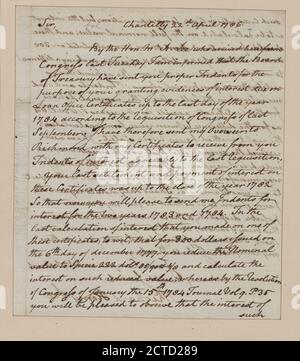 Sir, Chantilly 22d April 1786
By the Hon. Mr. who arrived here from
Congress last Tuesday I am informed that the Board
of Treasury have sent you proper Indents for the
purpose of your granting evidences of interest due on
Loan Office Certificates up to the last day of the year
1784 according to the requisition of Congress of last
September. I have therefore sent my Overseer to
Richmond with my Certificates to receive from you
Indents of interest agreeably to the last requisition.
Your last settlement and payment of interest on
these Certificates was up to the close of the year 1782
So that now you will please to send me Indents for
interest for the two years 1783 and 1784. In the
last calculation of interest that you made on one of
these certificates to wit, that for 300 dollars issued on
the 6th day of december 1777, you reduce the Nominal
value to Specie 222 doll. and calculate the
interest on such reduced value whereas by the Resolution
of Congress of January the 1784 Journal P. 35
you will be pleased to observe that the interest of
such
alamy
Image ID: 2CTD289
www.alamy.com